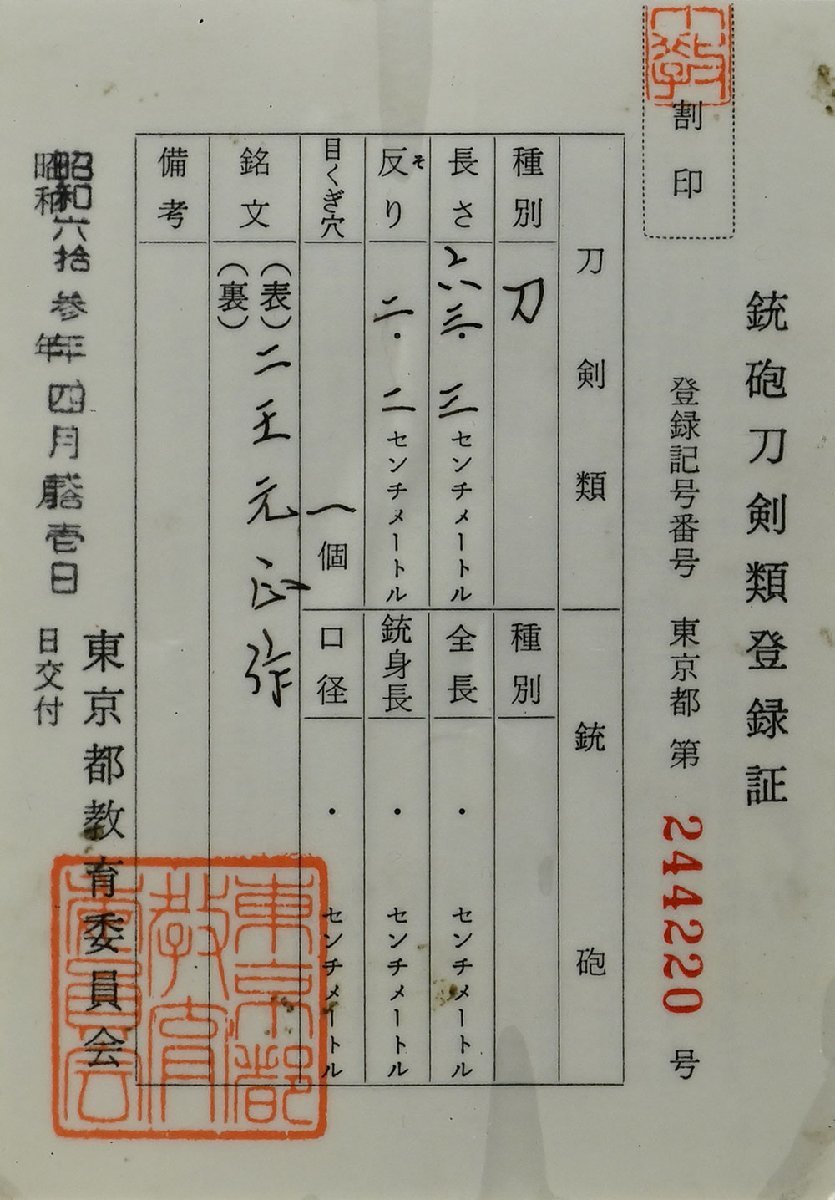 教
割印
銃砲刀剣類登録証
登録記号番号 東京都 第 244220 号
刀剣類
種別 刀
長さ 六三・三 センチメートル
反り 二・二 センチメートル
そ
目くぎ穴 一個
銘文 (表) 二王元正作
(裏)
備考
銃砲
種別
全長 ・ センチメートル
銃身長 ・ センチメートル
口径 ・ センチメートル
昭和六拾参年四月拾壱日
昭和 年 月 日交付
東京都教育委員会
東京都
教育
委員会